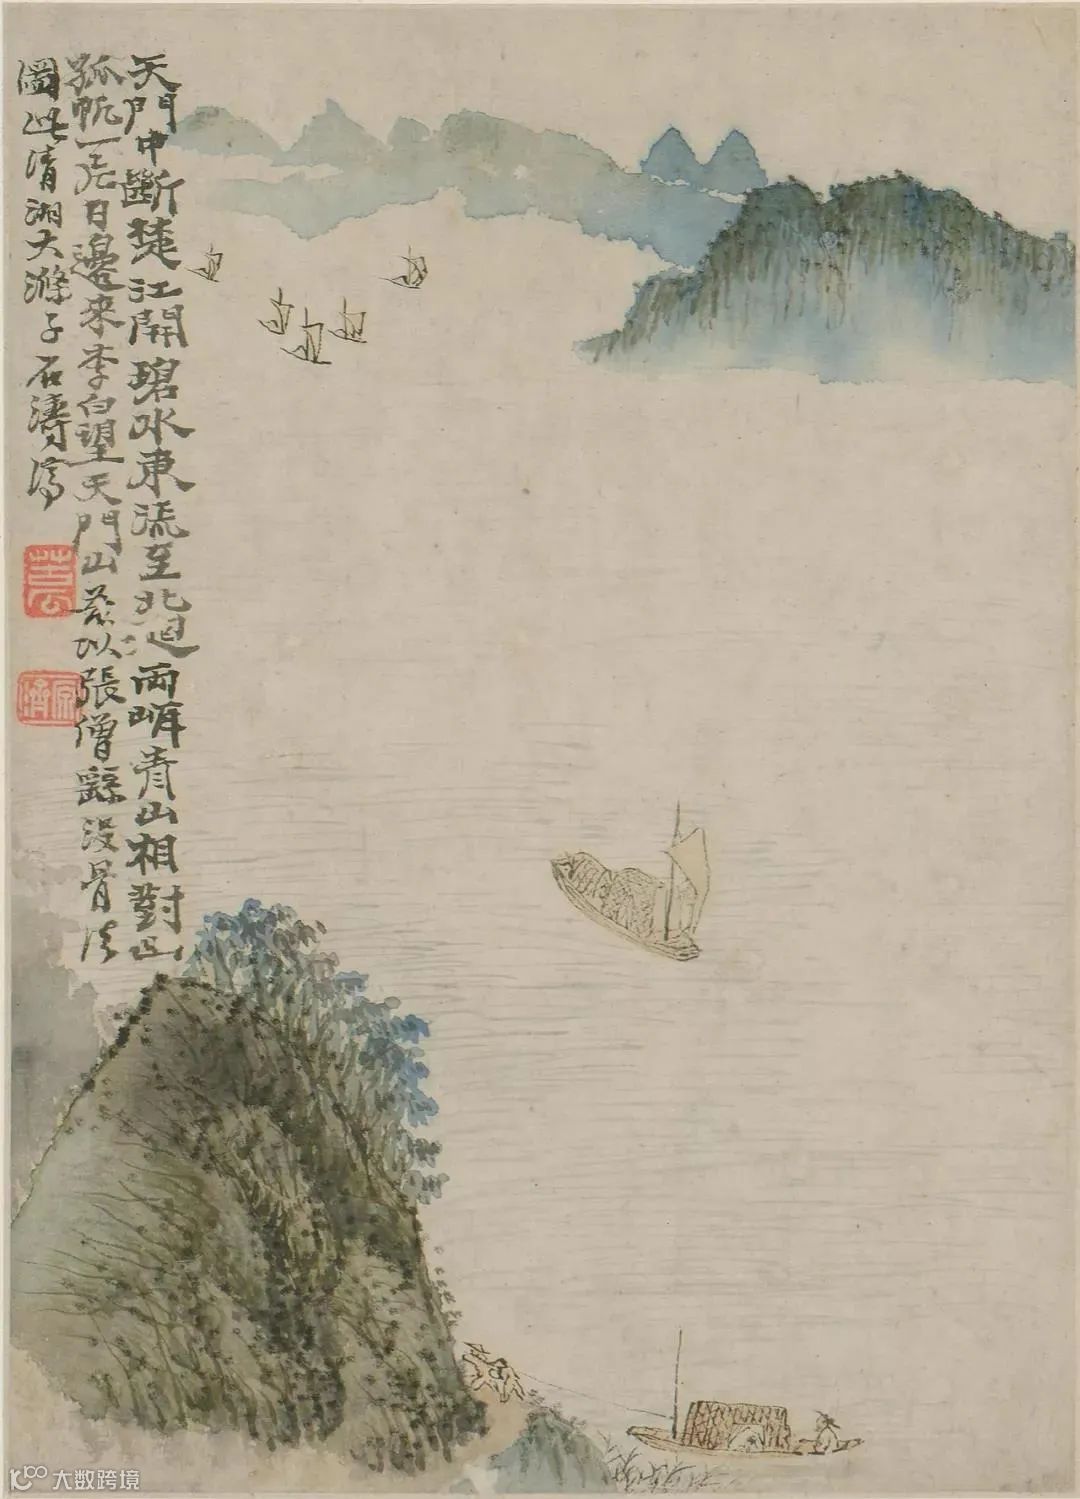 天門中斷楚江開碧水東流至北迴兩崖青山相對出
孤帆一片日邊來李白望天門山茲以張僧繇沒骨法
圖此清湘大滌子石濤濟
苦瓜
原濟
大数跨境